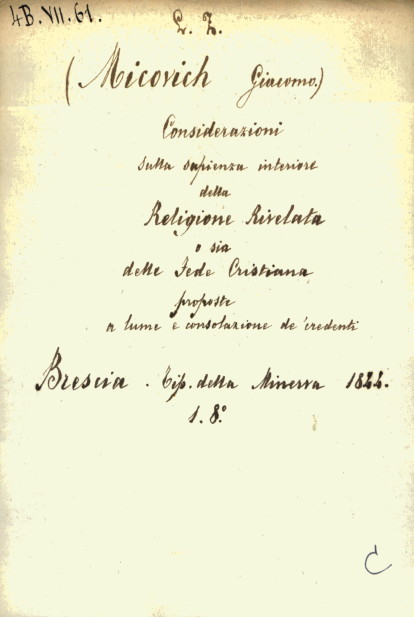 4B.VII.61.
L. Z.
(Micovich Giacomo.)
Considerazioni
sulla sapienza interiore
della
Religione Rivelata
o sia
delle Fede Cristiana
proposte
a lume e consolazione de' credenti
Brescia. Tip. della Minerva 1844.
1. 8.°
C